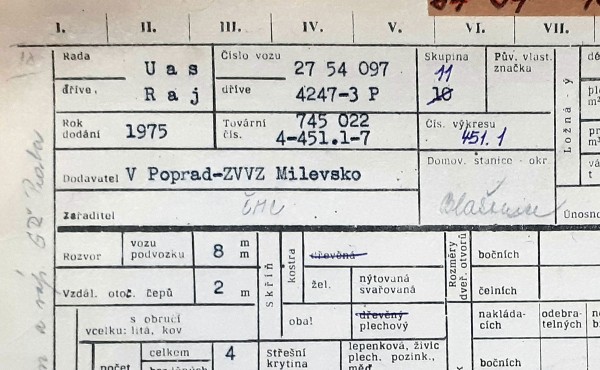 I. II. III. IV. V. VI. VII.
Řada U a s Číslo vozu 27 54 097 Skupina 11 Pův. vlast. značka
dříve, R a j dříve 4247-3 P 10
Rok dodání 1975 Tovární čís. 745 022 4-451.1-7 Čís. výkresu 451.1
Ložná
Dodavatel V Poprad-ZVVZ Milevsko Domov. stanice - okr.
Zařaditel Únosno
Rozvor vozu podvozku 8 m m Skříň kostra dřevěná Rozměry dveř. otvorů bočních
Vzdál. otoč. čepů 2 m žel. nýtovaná svařovaná čelních
s obručí vcelku: litá, kov obal dřevěný plechový nakláda- cích odebra- telných
počet celkem 4 Střešní krytina lepenková, živič plech. pozink., měď bočních